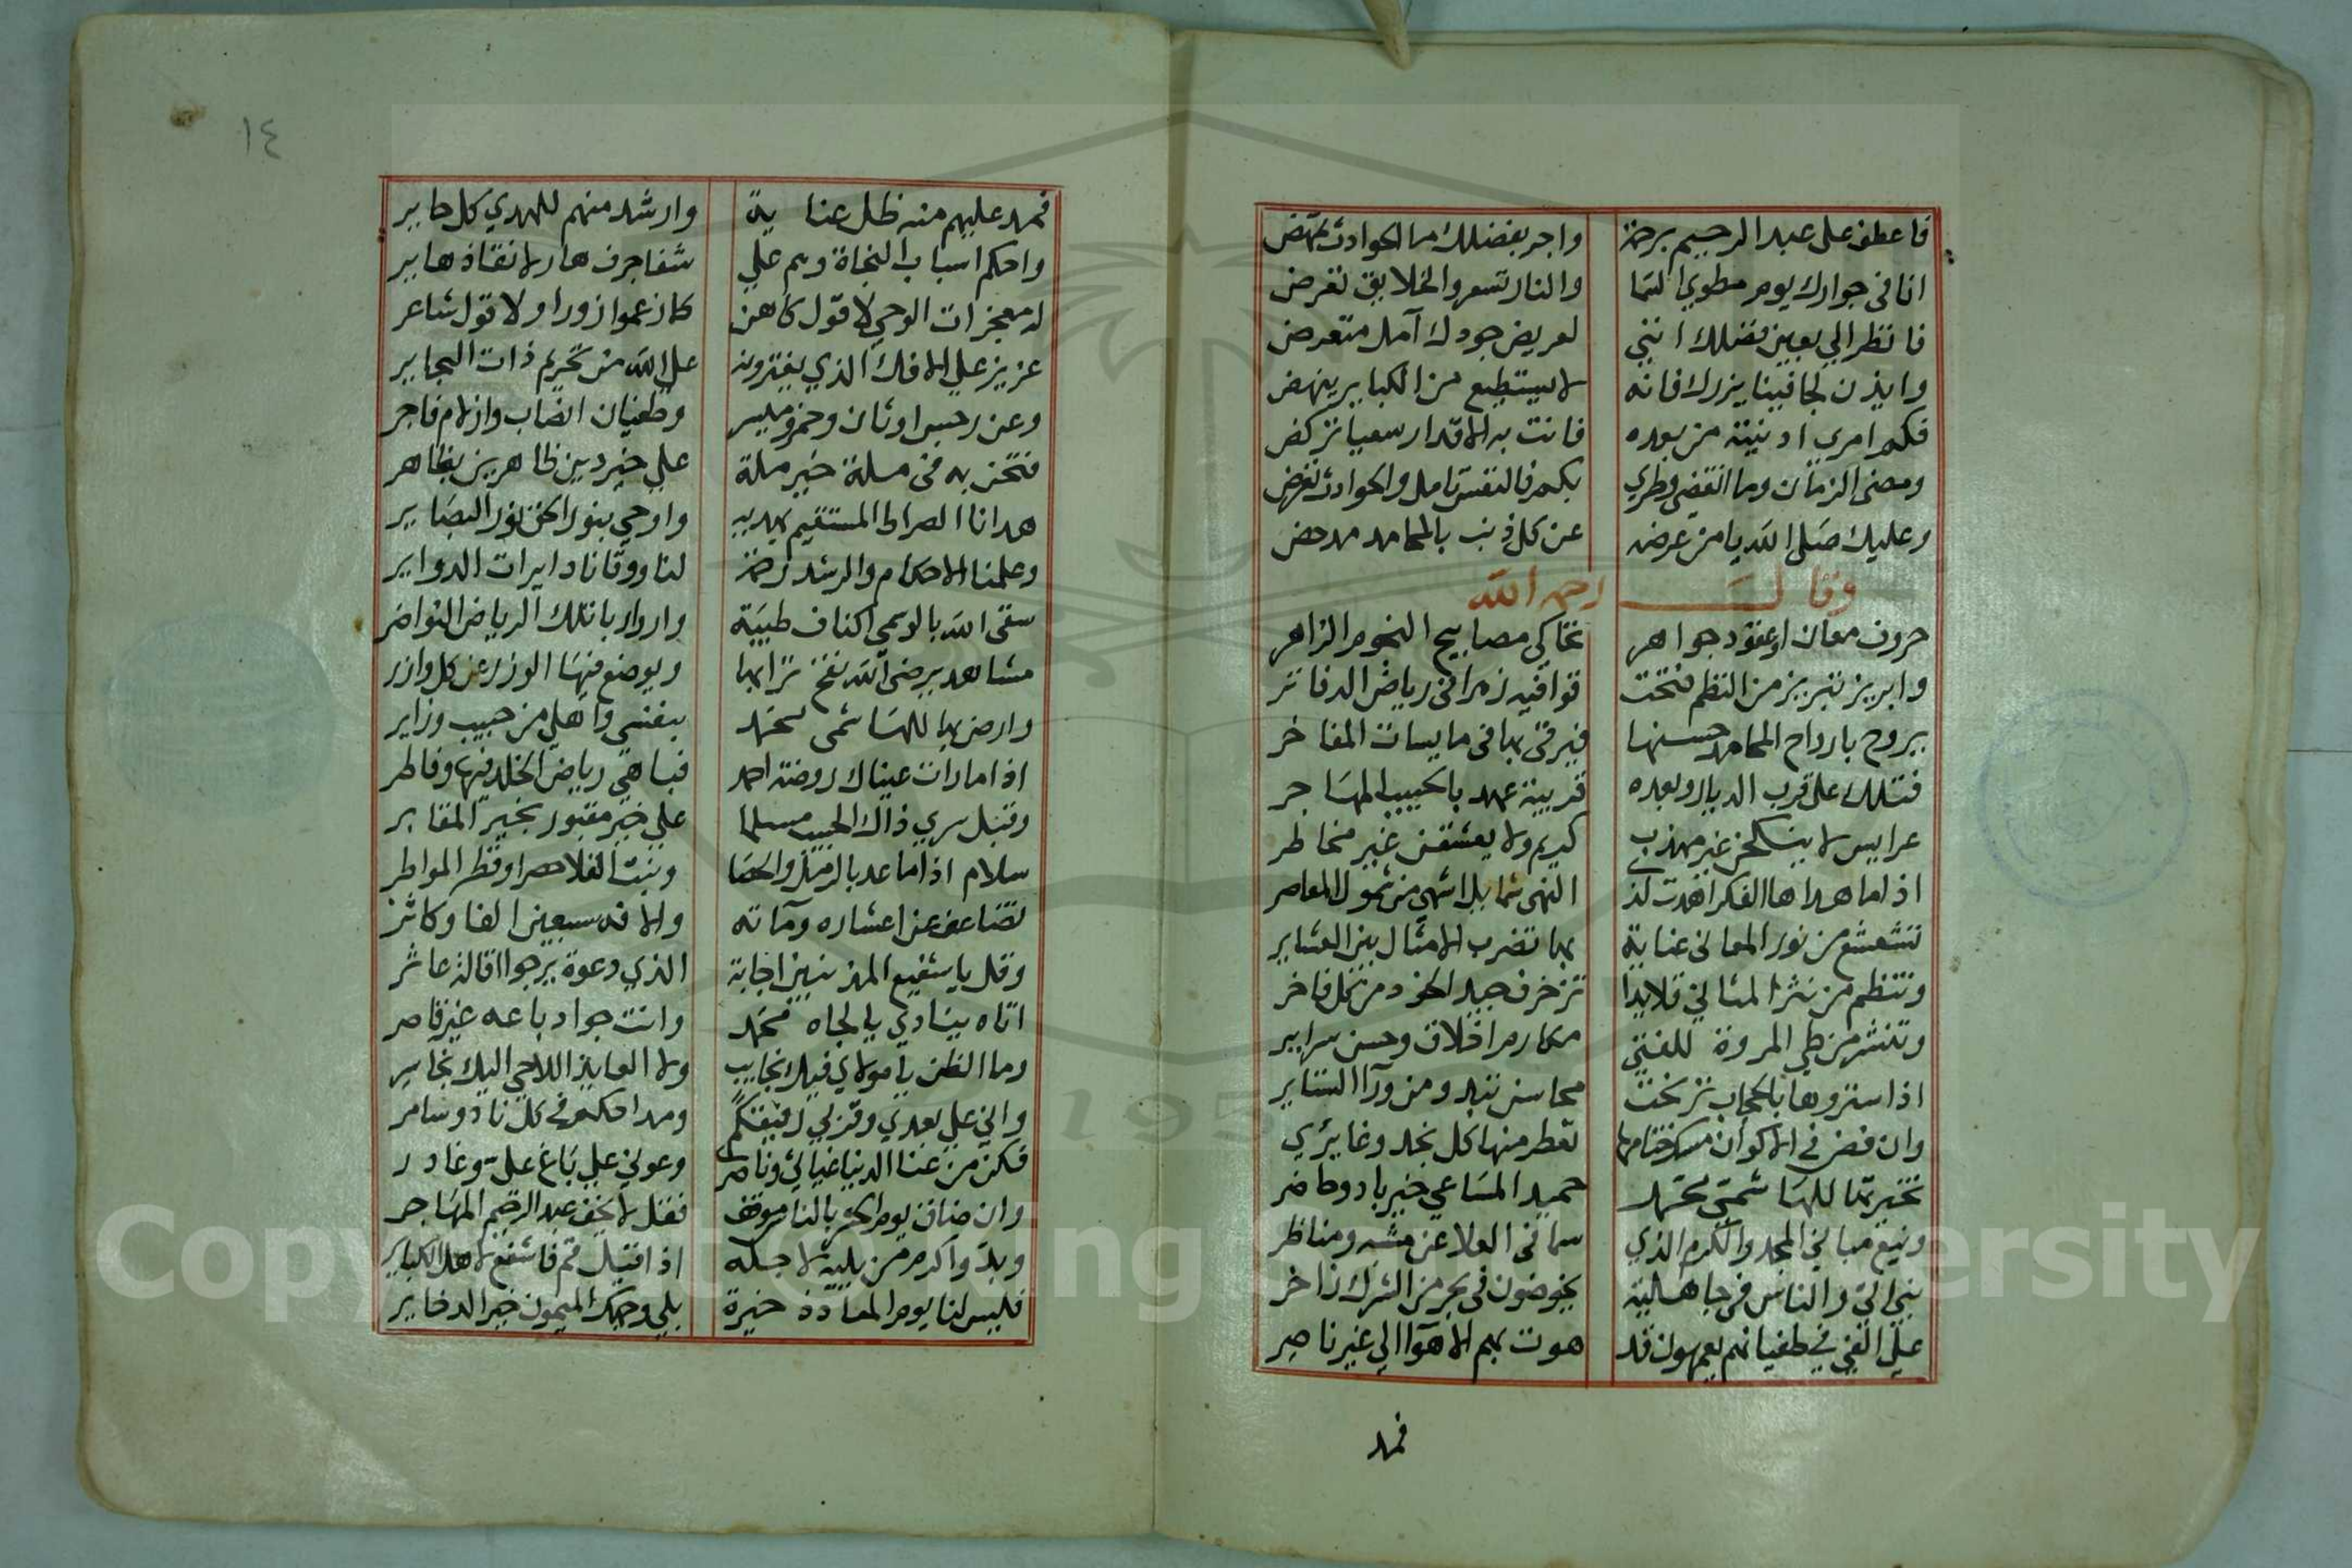 فاعطف على عبد الرحيم برحمة واجر بفضلك ما الحوادث تمهض
انا في جوارك يوم مطوي السما والنار تسعر والخلايق تعرض
فانظر الي بعين فضلك انني لعريض جودك آمل متعرض
وايذن لجافينا يزرك فانه لا يستطيع من الكباير ينهض
فكم امرء ادنيته من بعده فاتت به الاقدار سعيا تركض
ومضى الزمان وما انقضى وطري بكم فالنفس تامل والحوادث تعرض
وعليك صلى الله يا من عرضه عن كل ذنب بالمحامد مدحض
وقال رحمه الله
حروف معان او عقود جواهر تحاكي مصابيح النجوم الزاهر
وابريز تبريز من النظم فتحت قوافيه زهرا في رياض الدفاتر
يروح بارواح المحامد حسنها فيرقى بها في مايسات المفاخر
فتلك على قرب الديار وبعده قريبة عهد بالحبيب المهاجر
عرايس لا ينكحن غير مهذب كريم ولا يعشقن غير مخاطر
اذا ما هداها الفكر اهدت لذي النهى شمايلا اشهى من شمول المعاصر
تشعشع من نور المعاني عناية بها تضرب الامثال بين العشاير
وتنظم من نثر المثاني قلايدا تزخرف جيد الخود من كل فاخر
وتنشر من طي المروة للفتى مكارم اخلاق وحسن سراير
اذا ستروها بالحجاب تزخت محاسن تبدو من ورآ الستاير
وان فض في الاكوان مسك ختامها تعطر منها كل نجد وغاير
تخيرتها للهاشمي محمد حميد المساعي خير باد وحاضر
ونيع مباني المجد والكرم الذي سما في العلا عن مشبه ومناظر
نبي اتى والناس في جاهلية يخوضون في بحر من الشرك زاخر
على الغي في طغيانهم يعمهون قد هوت بهم الاهوآ الى غير ناصر
فمهد
١٤
فمهد عليهم منه ظل عناية وارشد منهم للهدي كل حاير
واحكم اسباب النجاة وهم علي شفا جرف هار لانقاذ هاير
له معجزات الوحي لا قول كاهن كما زعموا زورا ولا قول شاعر
عزيز علي الافك الذي يفترونه علي الله من تحريم ذات البحاير
وعن رجس اوثان وخمر وميسر وطغيان انصاب وازلام فاجر
فنحن به في ملة خير ملة علي خير دين ظاهر بين مظاهر
هدانا الصراط المستقيم بهديه واوحي بنور الحق نور البصاير
وعلمنا الاحكام والرشد رحمة لنا ووقانا دايرات الدواير
سقى الله بالوسمي اكناف طيبة واروا ربا تلك الرياض النواضر
مشاهد يرضى الله نفخ ترابها ويوضع فيها الوزر عن كل وازر
وارض بها للهاشمي محمد بنفسي واهلي من حبيب وزاير
اذا ما رات عيناك روضة احمد فباهي رياض الخلد فيها وفاطر
وقبل ثري ذاك الحبيب مسلما علي خير مقبور بخير المقابر
سلام اذا ما عد بالرمل والحصا ونبت الفلا حصرا وقطر المواطر
تضاعف عن اعشاره ومآته والافه سبعين الفا وكاثر
وقل يا شفيع المذنبين اجابة الذي دعوة يرجوا اقالة عاثر
اتاه ينادي يا لجاه محمد وانت جواد باعه غير قاصر
وما الظن يا مولاي فيك بخايب ولا العايذ اللاجي اليك بخاسر
واني علي بعدي وقربي رفيقكم ومداحكم في كل ناد وسامر
فكن من عنا الدنيا غياثي وناصرا وعوني علي باغ علي وغادر
وان ضاق يوم الحشر بالناس موقف فقل لا تخف عبد الرحيم المهاجر
وبل واكرم من يليه لاجله اذا قيل قم فاشفع لاهل الكباير
فليس لنا يوم المعاد ذخيرة بلي وجهك الميمون خير الدخاير